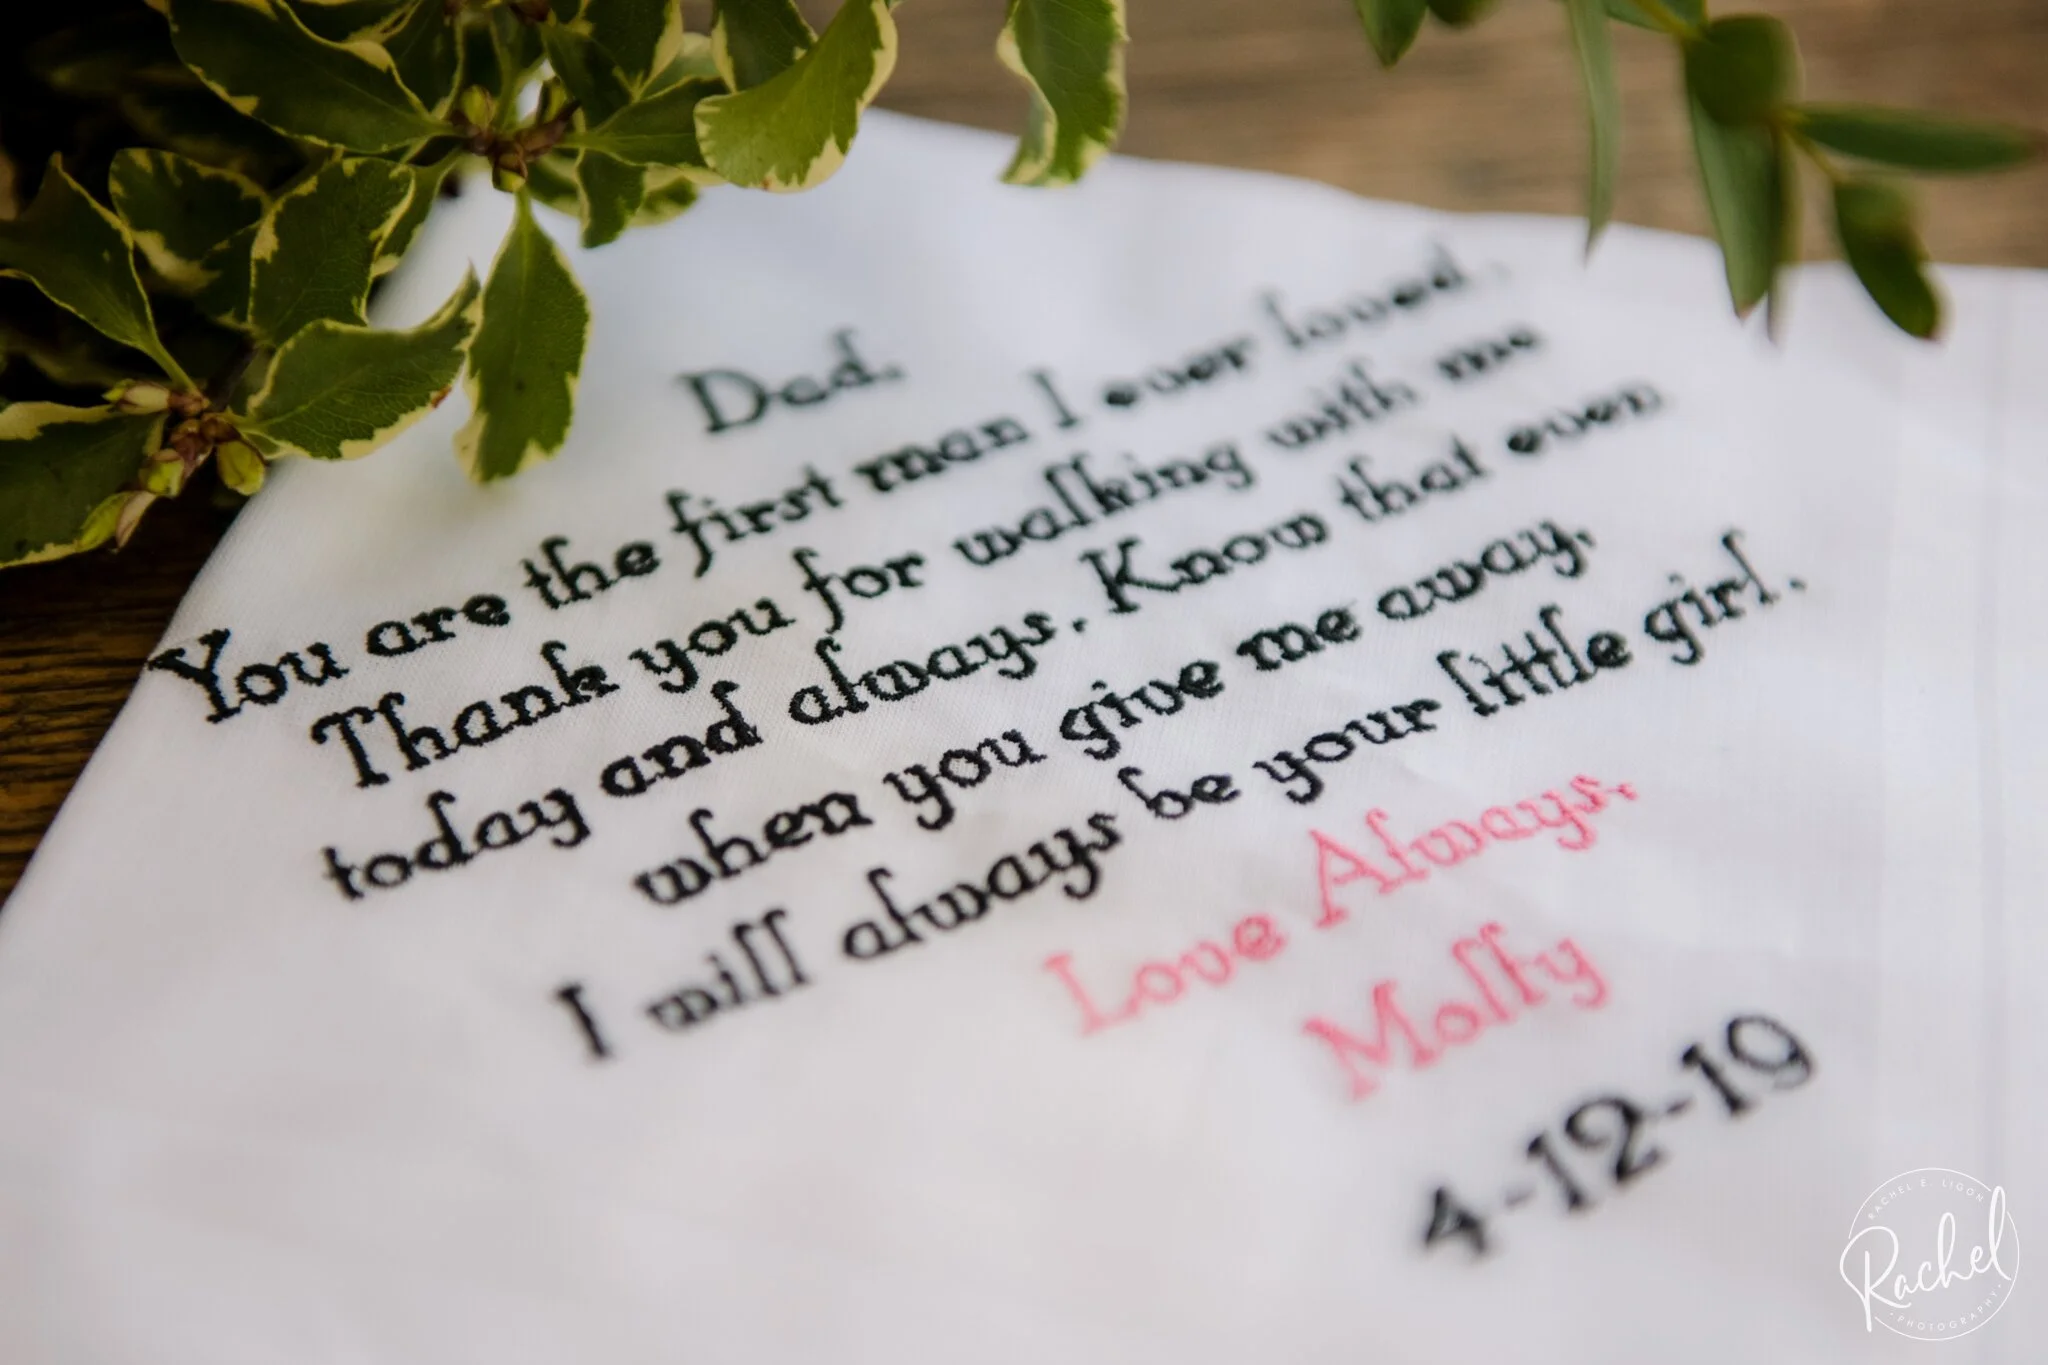 Dad,
You are the first man I ever loved.
Thank you for walking with me
today and always. Know that even
when you give me away,
I will always be your little girl.
Love Always,
Molly
4-12-19
RACHEL E. LIGON
Rachel
PHOTOGRAPHY